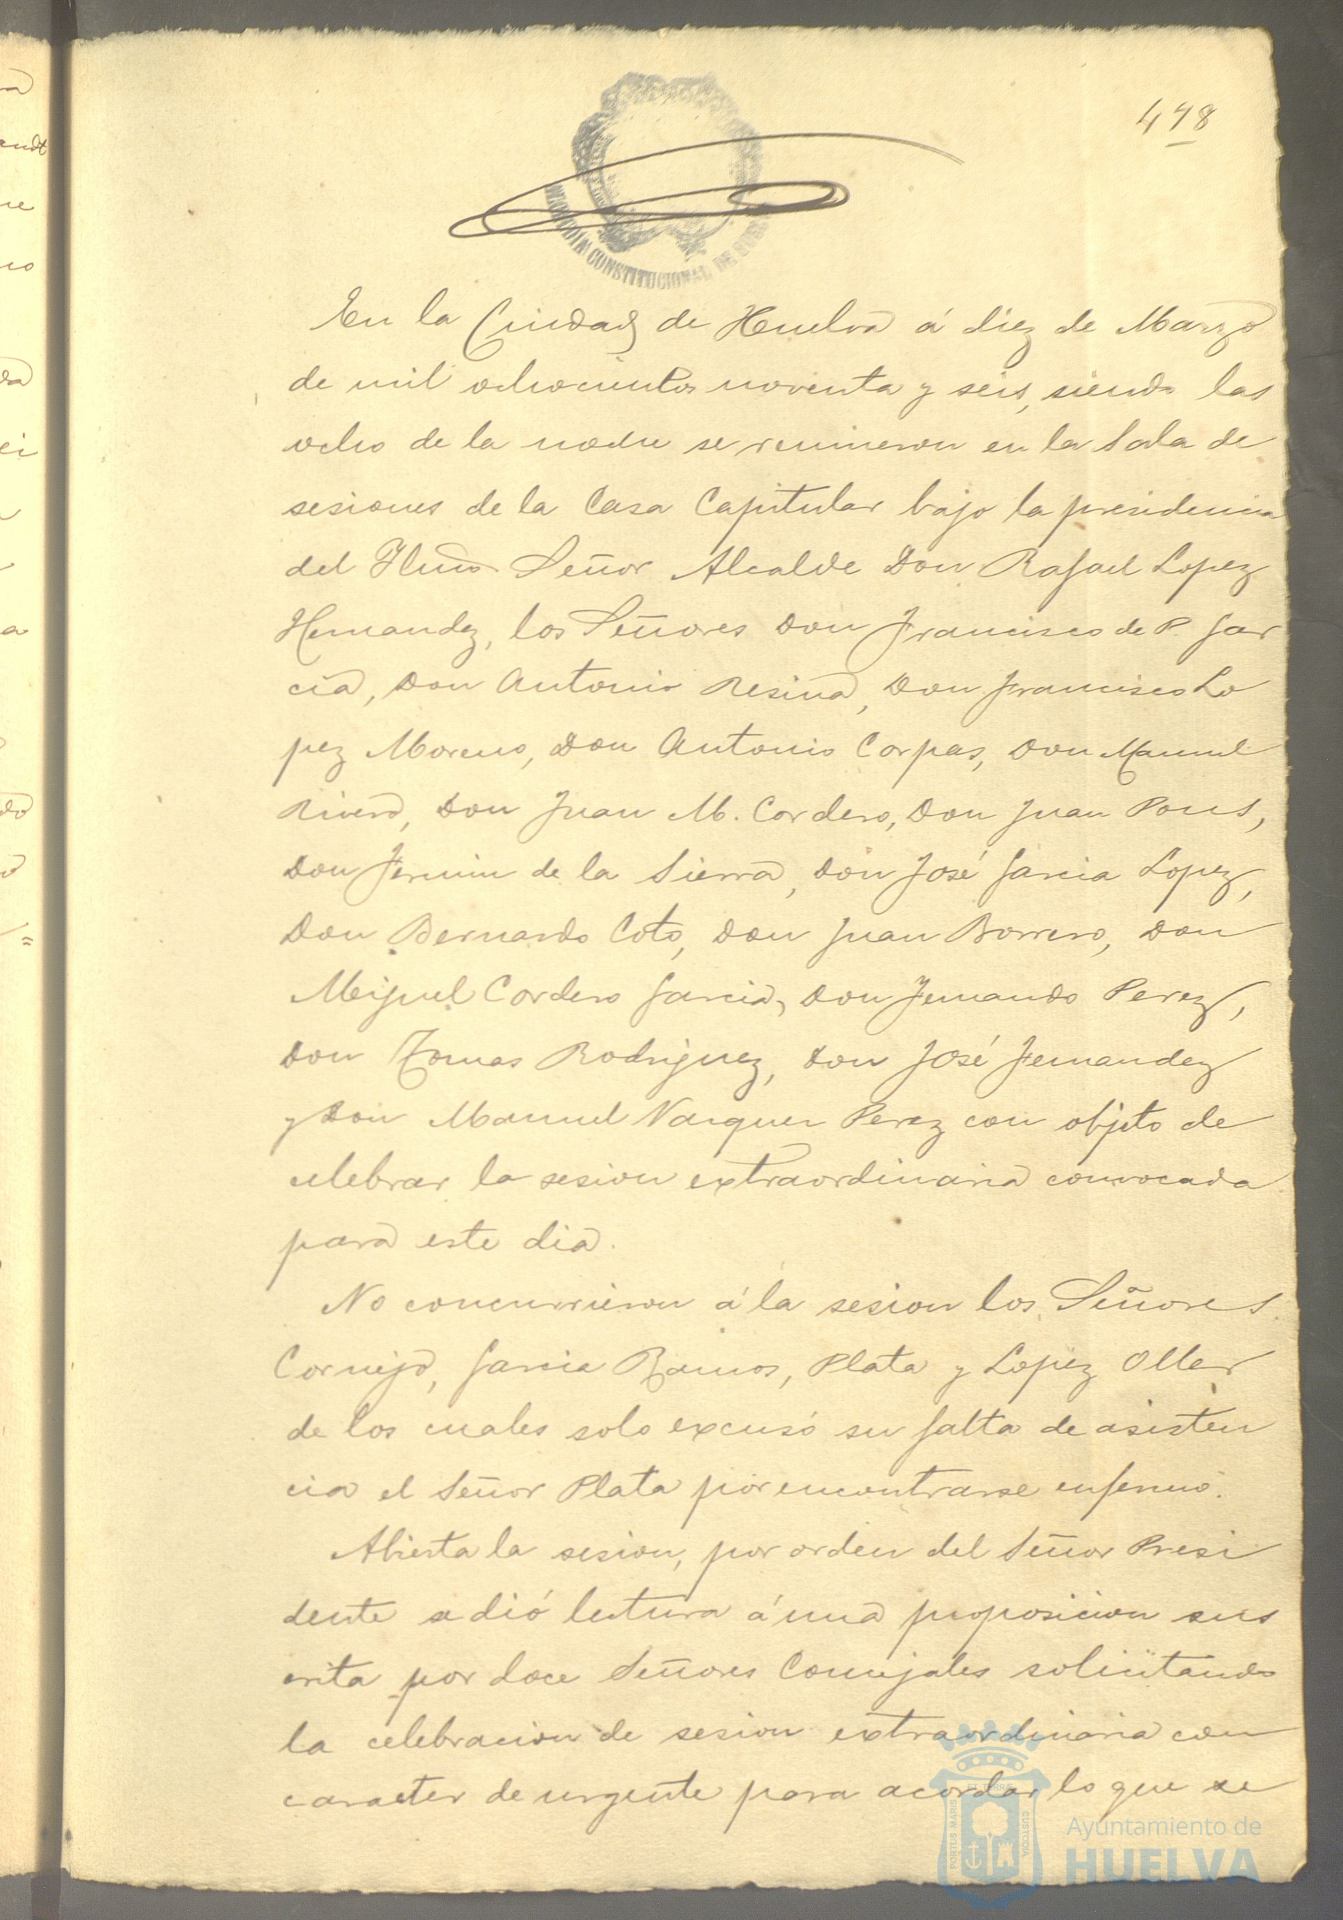 478
CONSTITUCIONAL DE
En la Ciudad de Huelva á diez de Marzo
de mil ochocientos noventa y seis, siendo las
ocho de la noche se reunieron en la Sala de
sesiones de la Casa Capitular bajo la presidencia
del Ilmo Señor Alcalde Don Rafael Lopez
Hernandez, los Señores Don Francisco de P. Gar
cia, Don Antonio Resina, Don Francisco Lo
pez Moreno, Don Antonio Corpas, Don Manuel
Rivero, Don Juan M. Cordero, Don Juan Pons,
Don Fermin de la Sierra, Don José Garcia Lopez,
Don Bernardo Coto, Don Juan Borrero, Don
Miguel Cordero Garcia, Don Fernando Perez,
Don Tomas Rodriguez, Don José Fernandez
y Don Manuel Vazquez Perez con objeto de
celebrar la sesion extraordinaria convocada
para este dia.
No concurrieron á la sesion los Señores
Cornejo, Garcia Ramos, Plata y Lopez Oller
de los cuales solo excusó su falta de asisten
cia el Señor Plata por encontrarse enfermo.
Abierta la sesion, por orden del Señor Presi
dente se dió lectura á una proposicion sus
crita por doce Señores Concejales solicitando
la celebracion de sesion extraordinaria con
caracter de urgente para acordar lo que se
PORTUS MARIS
ET TERRE
CUSTODIA
Ayuntamiento de
HUELVA